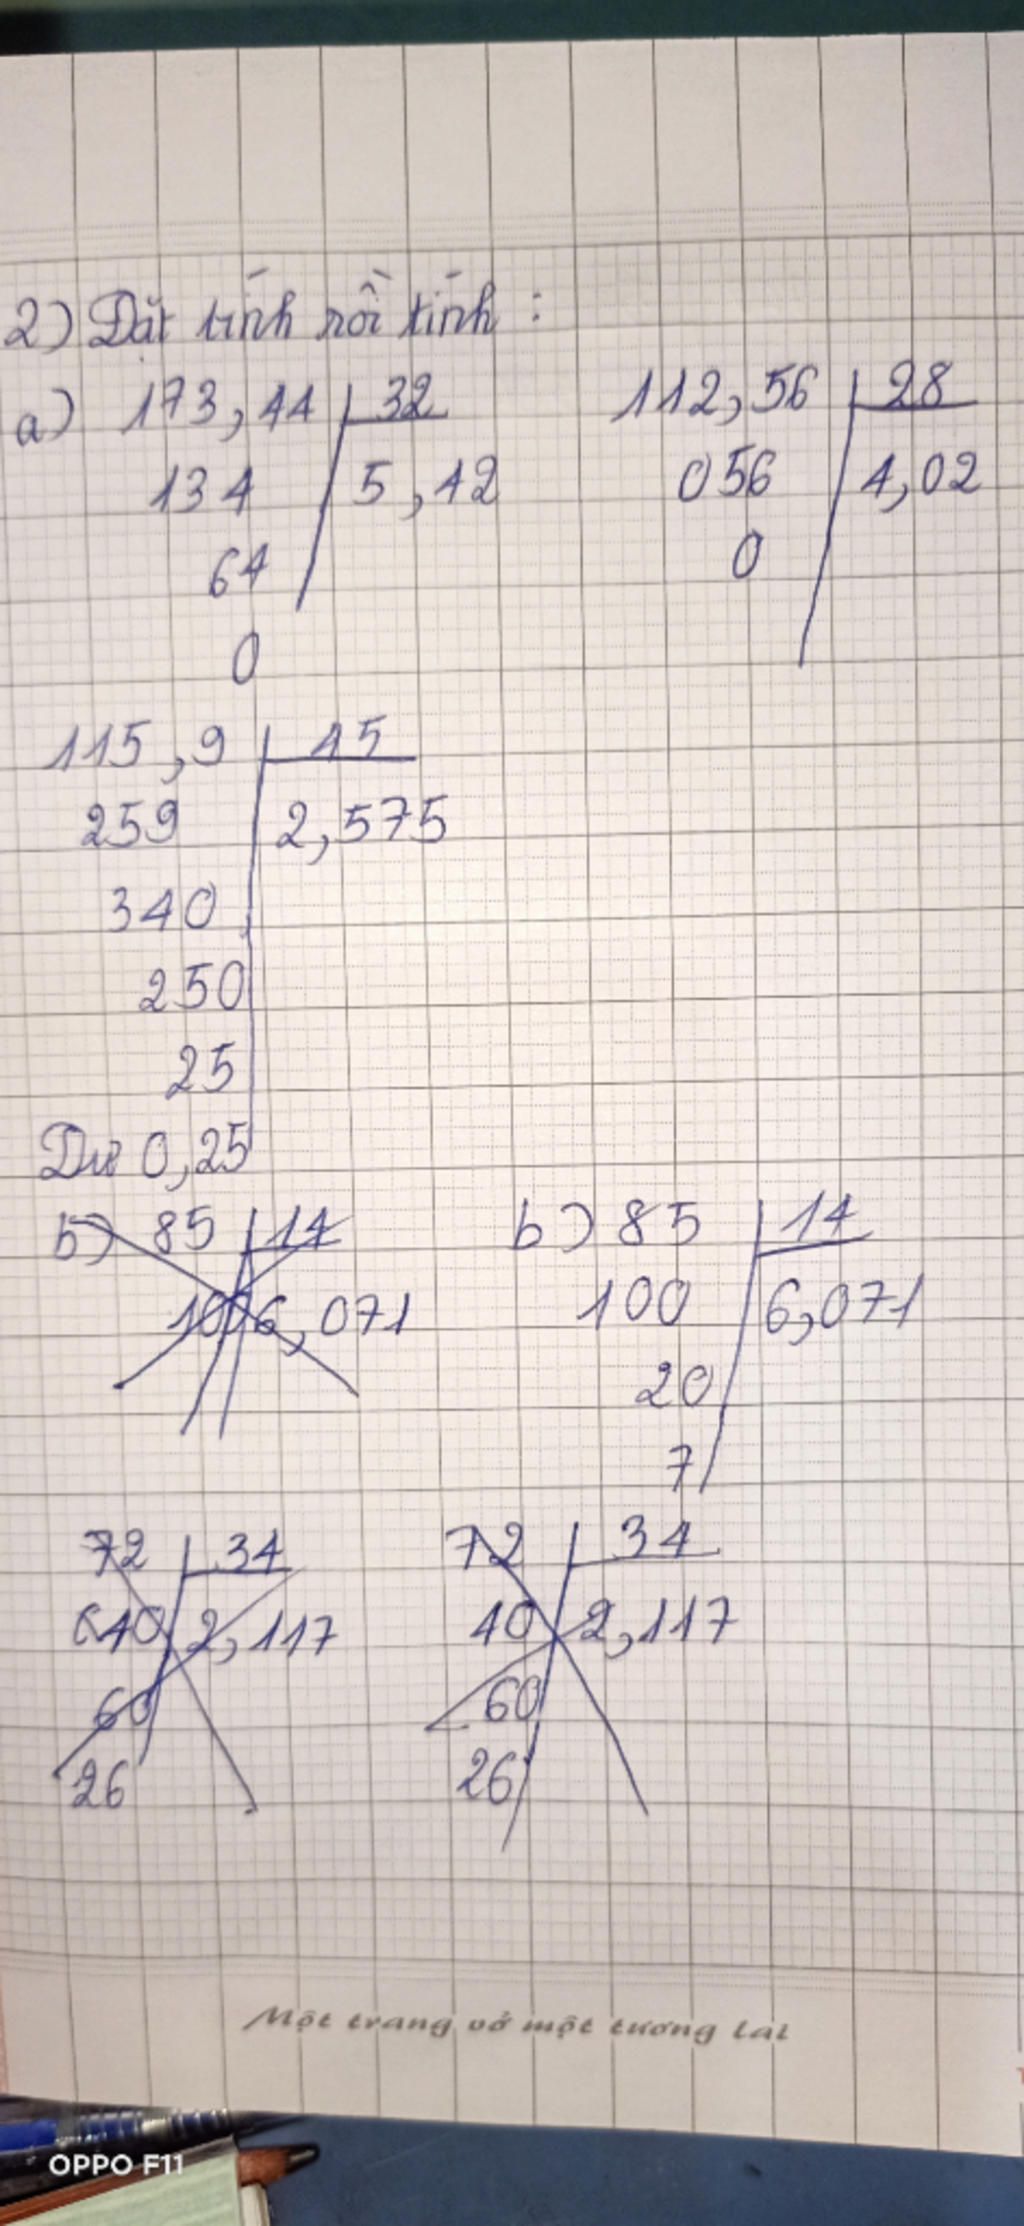 2) Đặt tính rồi tính :
a) 173,44 32 112,56 28
134 5,42 056 4,02
64 0
0
115,9 45
259 2,575
340
250
25
Dư 0,25
b) 85 14 b) 85 14
100 6,071 100 6,071
20
7
72 34 72 34
40 2,117 40 2,117
60 60
26 26
Một trang vở một tương lai
OPPO F11